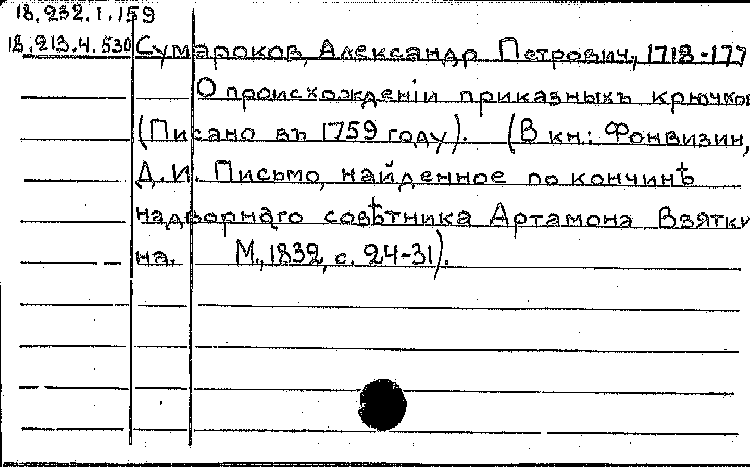 18.232.1.159
18.213.4.530 Сумароков, Александр Петрович, 1718-177
О происхожденіи приказныхъ крючков
(Писано въ 1759 году). (В кн.: Фонвизин,
Д.И. Письмо, найденное по кончинѣ
надворнаго совѣтника Артамона Взятки
на. М., 1832, с. 24-31).